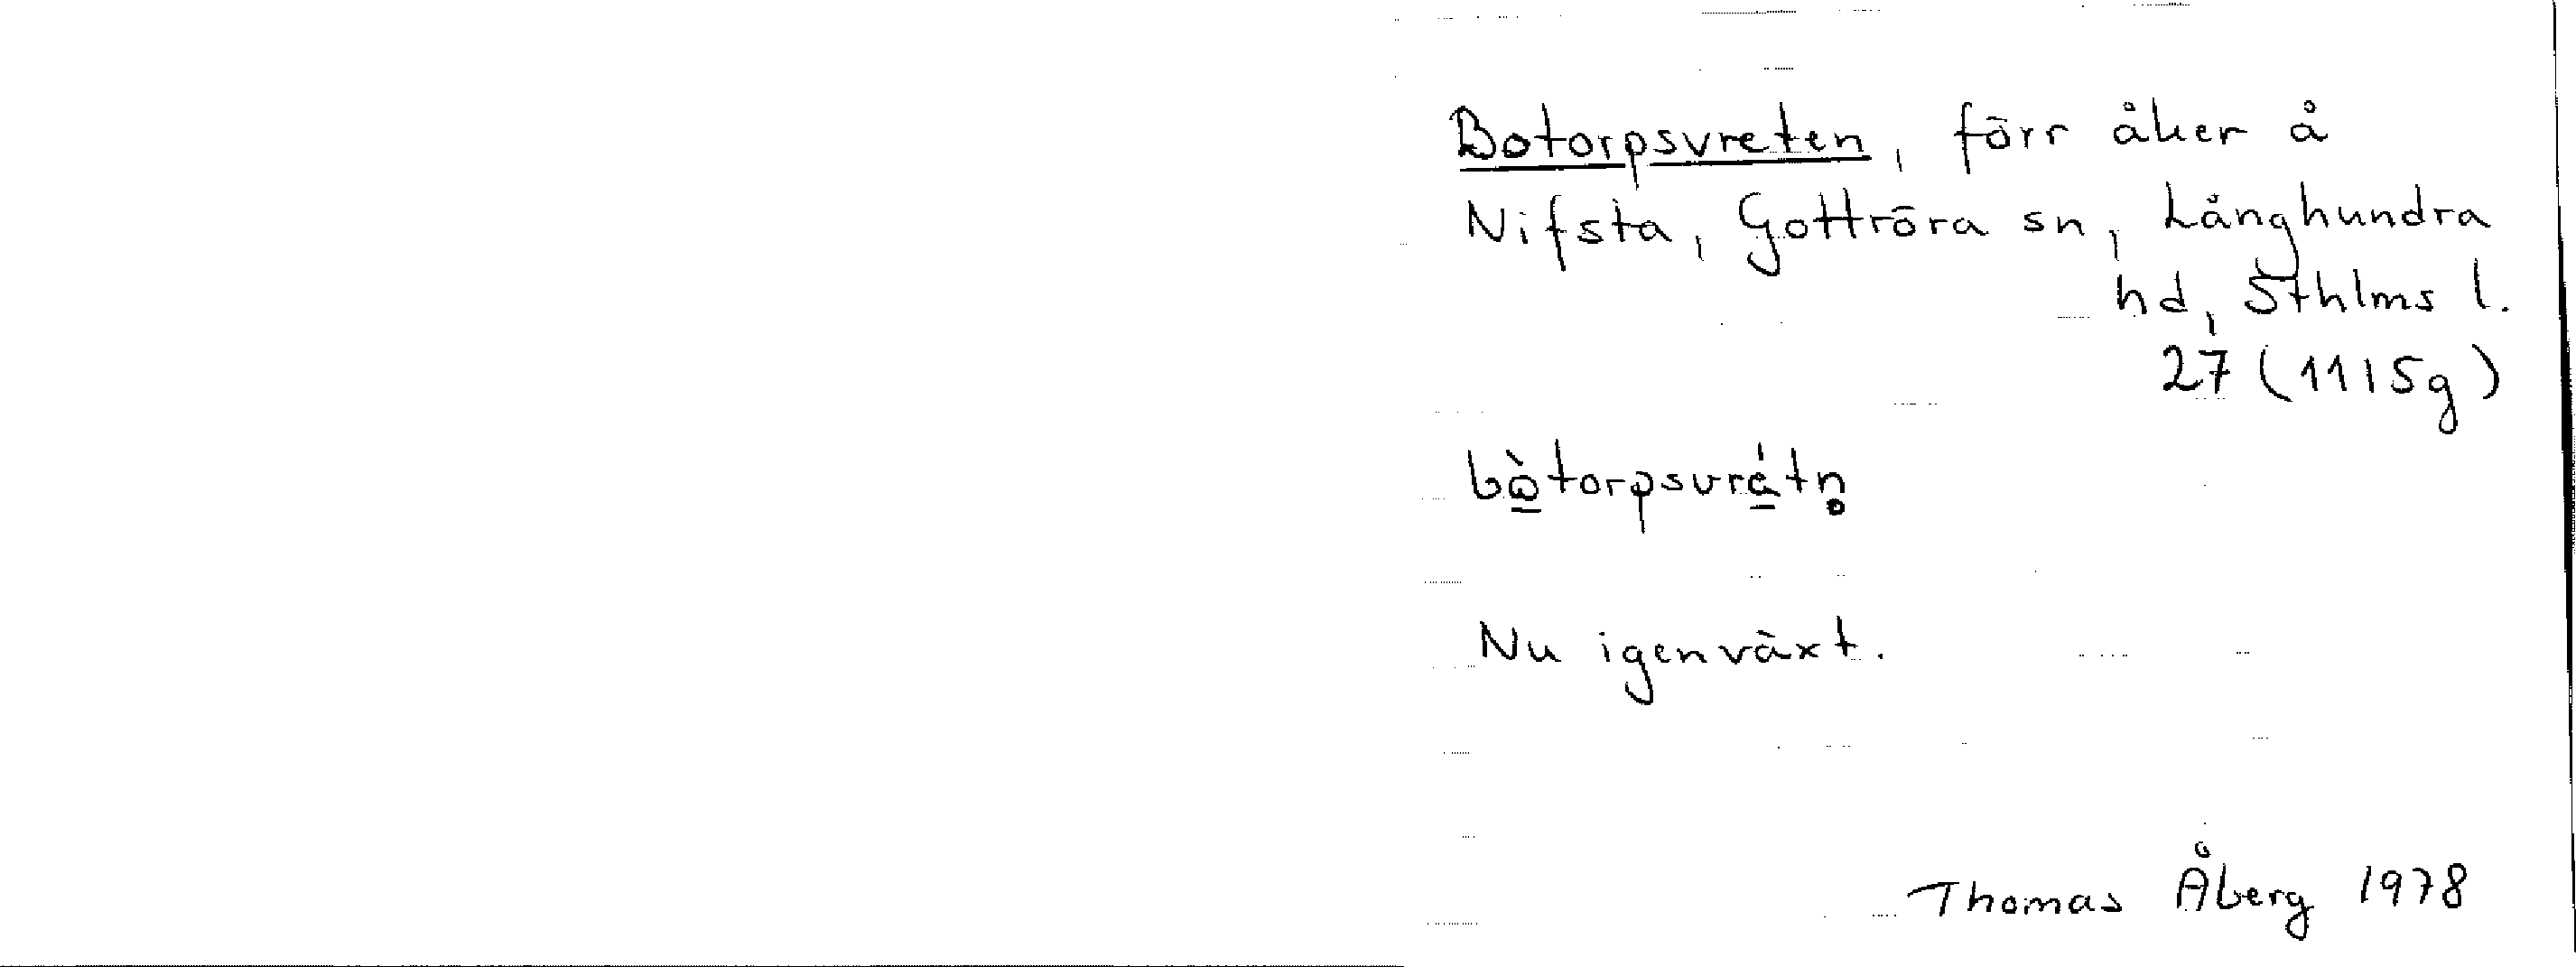 Botorpsvreten, förr åker å
Nifsta, Gottröra sn, Långhundra
hd, Sthlms l.
27 (1115g)
bò̲torpsvré̲tn̥
Nu igenväxt.
Thomas Åberg 1978